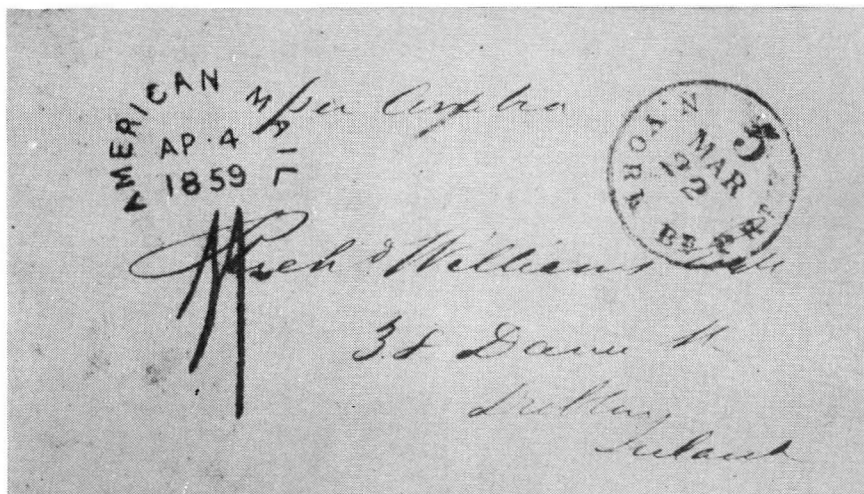 AMERICAN MAIL
AP·4
1859
per
N. YORK
5
MAR
22
Rich^d Williams
38 Dame St
Dublin
Ireland